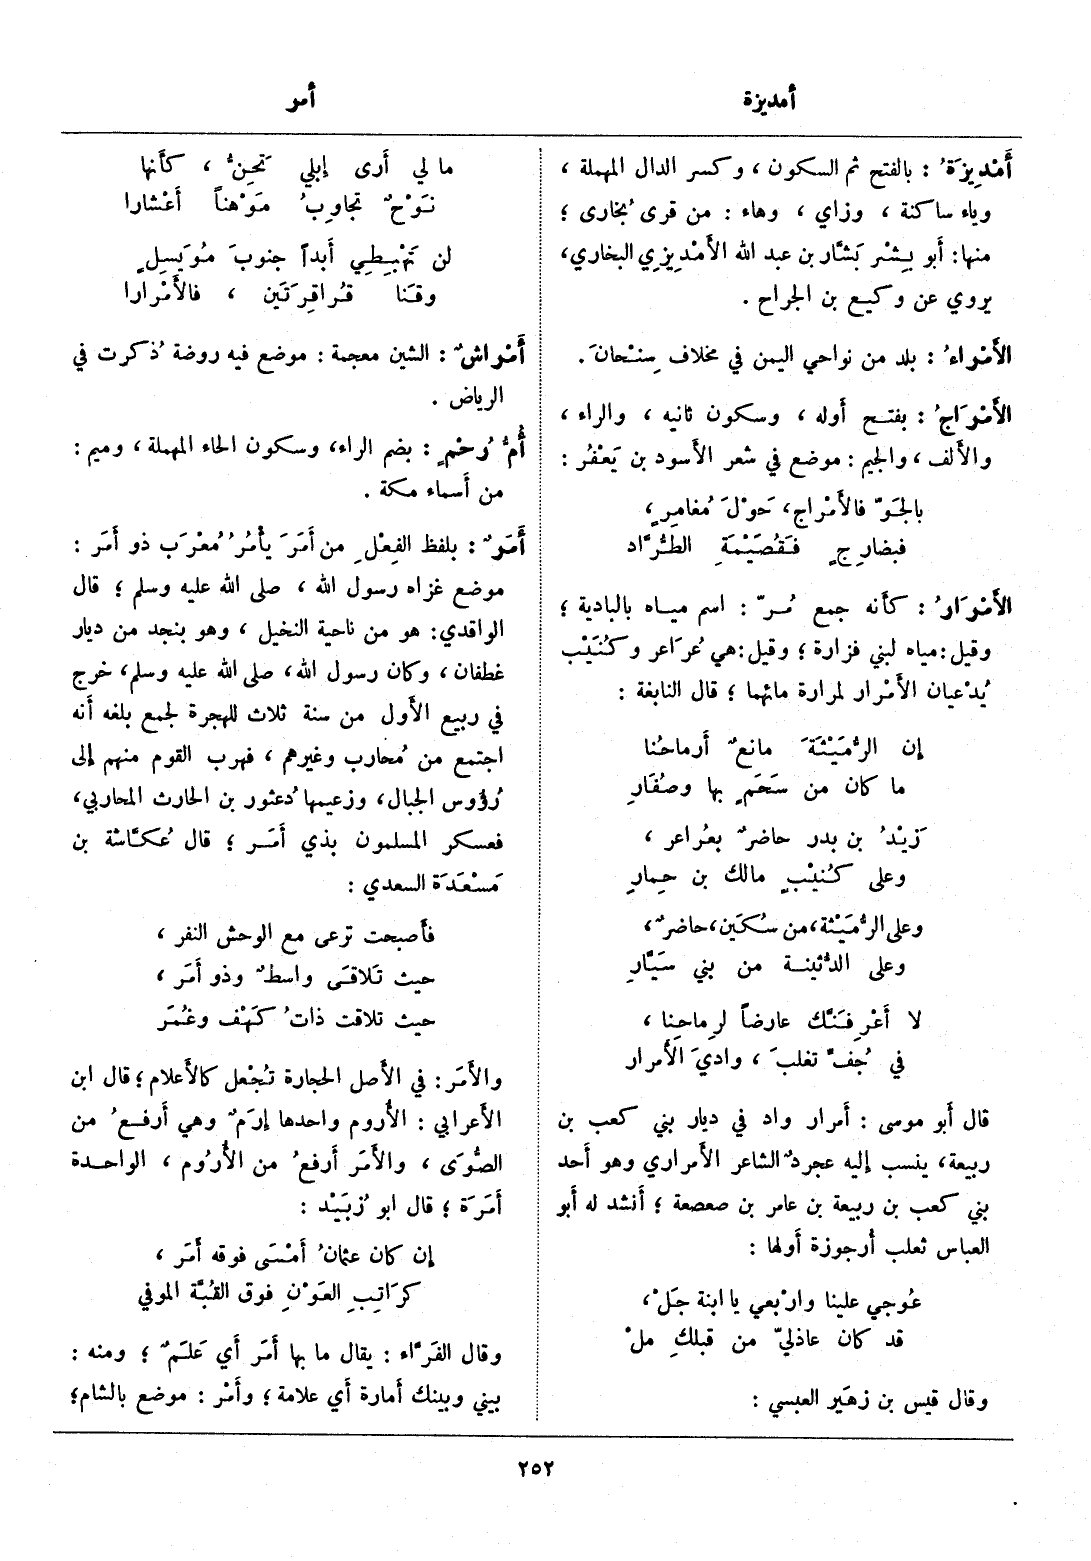 أمديزة
أمر
أَمْدِيزَةُ : بالفتح ثم السكون ، وكسر الدال المهملة ،
وياء ساكنة ، وزاي ، وهاء : من قرى بُخارى ؛
منها: أبو بِشْر بَشَّار بن عبد الله الأمْدِيزي البخاري،
يروي عن وكيع بن الجراح .
الأَمْراءُ : بلد من نواحي اليمن في مخلاف سِنْحانَ .
الأَمْرَاجُ : بفتح أوله ، وسكون ثانيه ، والراء ،
والألف ، والجيم : موضع في شعر الأسود بن يَعْفُر :
بالجَوّ فالأَمْراج، حَوْلَ مُغامِرٍ،
فبضارِجٍ فقُصَيْمَةِ الطُّرَّاد
الأَمْرَارُ : كأنه جمع مُرّ : اسم مياه بالبادية ؛
وقيل: مياه لبني فزارة ؛ وقيل: هي عُرَاعر وكُنَيْب
يُدْعيان الأَمْرار لمرارة مائهما ؛ قال النابغة :
إن الرُّمَيْثَةَ مانعٌ أرماحُنا
ما كان من سَحَمٍ بها وصُفَارِ
زَيْدُ بن بدر حاضرٌ بعُراعر ،
وعلى كُنَيْبٍ مالك بن حِمارِ
وعلى الرُّمَيْثة، من سُكَين، حاضرٌ،
وعلى الدُّثينة من بني سَيَّارِ
لا أَعْرِفَنَّك عارضاً لرِماحِنا ،
في جُفّ تغلبَ ، واديَ الأَمرار
قال أبو موسى : أمرار واد في ديار بني كعب بن
ربيعة، ينسب إليه عجردٌ الشاعر الأمراري وهو أحد
بني كعب بن ربيعة بن عامر بن صعصعة ؛ أنشد له أبو
العباس ثعلب أُرجوزة أولها :
عُوجي علينا وارْبعي يا ابنة جَلْ،
قد كان عاذليّ من قبلكِ ملْ
وقال قيس بن زهَير العبسي :
ما لي أرى إبلي تَحِنُّ ، كأنها
نَوْحٌ تجاوبُ مَوْهناً أعْشارا
لن تَهْبِطِي أبداً جنوبَ مُوَيسِلٍ
وقَنا قُراقِرَتَين ، فالأَمْرارا
أَمْراشٌ : الشين معجمة : موضع فيه روضة ذُكرت في
الرياض .
أُمُّ رُحْمٍ : بضم الراء، وسكون الحاء المهملة ، وميم :
من أسماء مكة .
أَمَرٌ : بلفظ الفِعْلِ من أَمَرَ يأمُرُ مُعْرَب ذو أمَر :
موضع غزاه رسول الله ، صلى الله عليه وسلم ؛ قال
الواقدي: هو من ناحية النخيل ، وهو بنجد من ديار
غطفان ، وكان رسول الله، صلى الله عليه وسلم، خرج
في ربيع الأول من سنة ثلاث للهجرة لجمع بلغه أنه
اجتمع من مُحارب وغيرهم ، فهرب القوم منهم إلى
رُؤوس الجبال، وزعيمها دُعثور بن الحارث المحاربي،
فعسكر المسلمون بذي أمَر ؛ قال عُكاَّشة بن
مَسْعَدَة السعدي :
فأصبحت ترعى مع الوحش النفر ،
حيث تَلاقَى واسطٌ وذو أَمَر ،
حيث تلاقت ذاتُ كَهْف وغُمَر
والأَمَر: في الأصل الحجارة تُجْعل كالأعلام ؛ قال ابن
الأعرابي : الأُروم واحدها إرَمٌ وهي أرفعُ من
الصُّوَى ، والأمَر أرفعُ من الأُرُوم ، الواحدة
أمَرَة ؛ قال ابو زُبَيْد :
إن كان عثمانُ أمْسَى فوقه أَمَر ،
كرَاتِبِ العَوْنِ فوق القُبَّة الموفي
وقال الفَرَّاء : يقال ما بها أمَر أي عَلَمٌ ؛ ومنه :
بيني وبينك أمارة أي علامة ؛ وأَمَر : موضع بالشام؛
٢٥٢